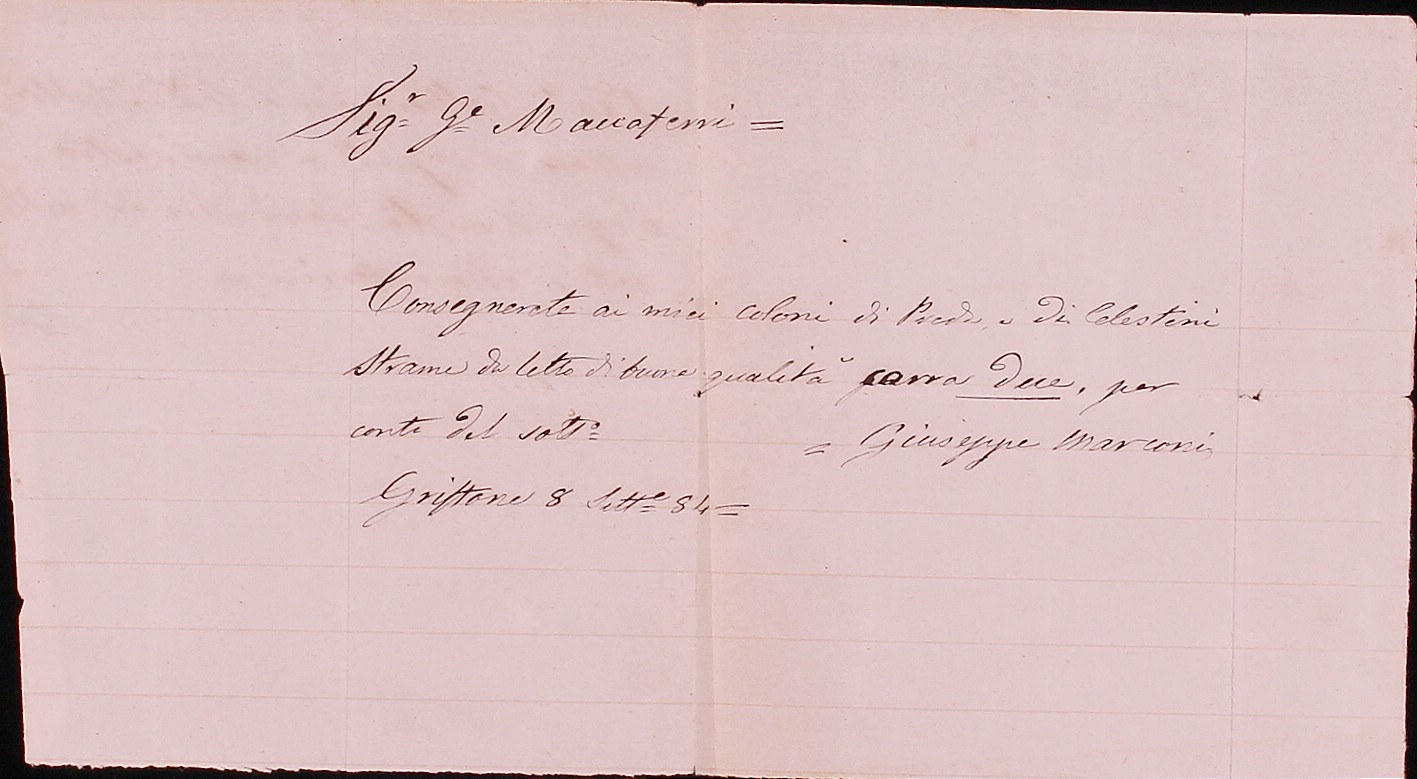 Sig.r G.e Maccaferri =
Consegnerete ai miei coloni di Preda, e di Celestini
strame da letto di buona qualità carra due, per
conto del sott.o = Giuseppe Marconi
Griffone 8 Sett.e 84 =